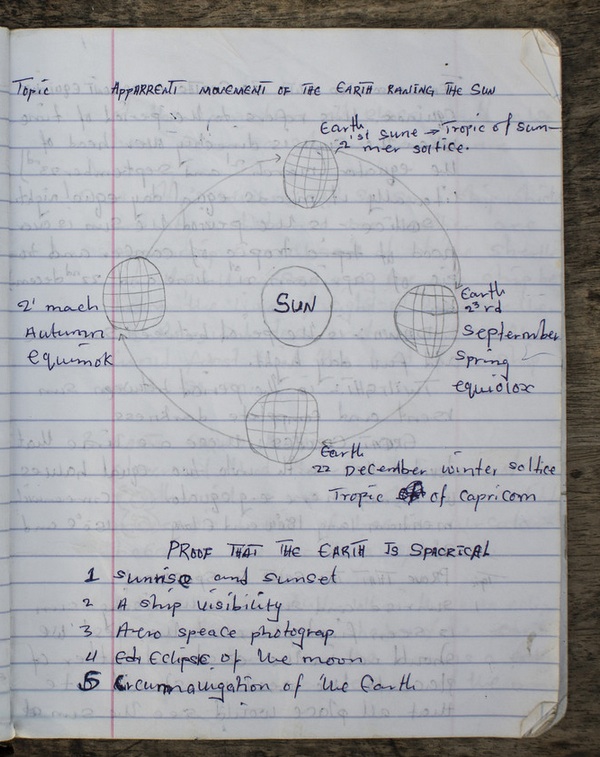 Topic APPARRENT MOVEMENT OF THE EARTH RANING THE SUN
Earth
21st sune → Tropic of sum-
mer soltice.
SUN
2' mach
Autumn
equimok
Earth
23rd
Septermber
Spring
equiolox
Earth
22 December winter soltice
Tropic of capricorn
PROOF THAT THE EARTH IS SPACRICAL
1 sunrise and sunset
2 A ship visibility
3 Aero speace photograp
4 Eclipse of the moon
5 Circumnaugation of the Earth